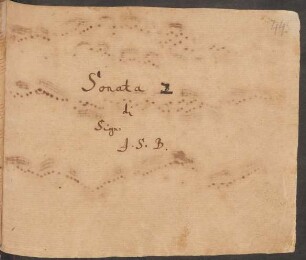 Sonata 1
di
Sign.
J. S. B.